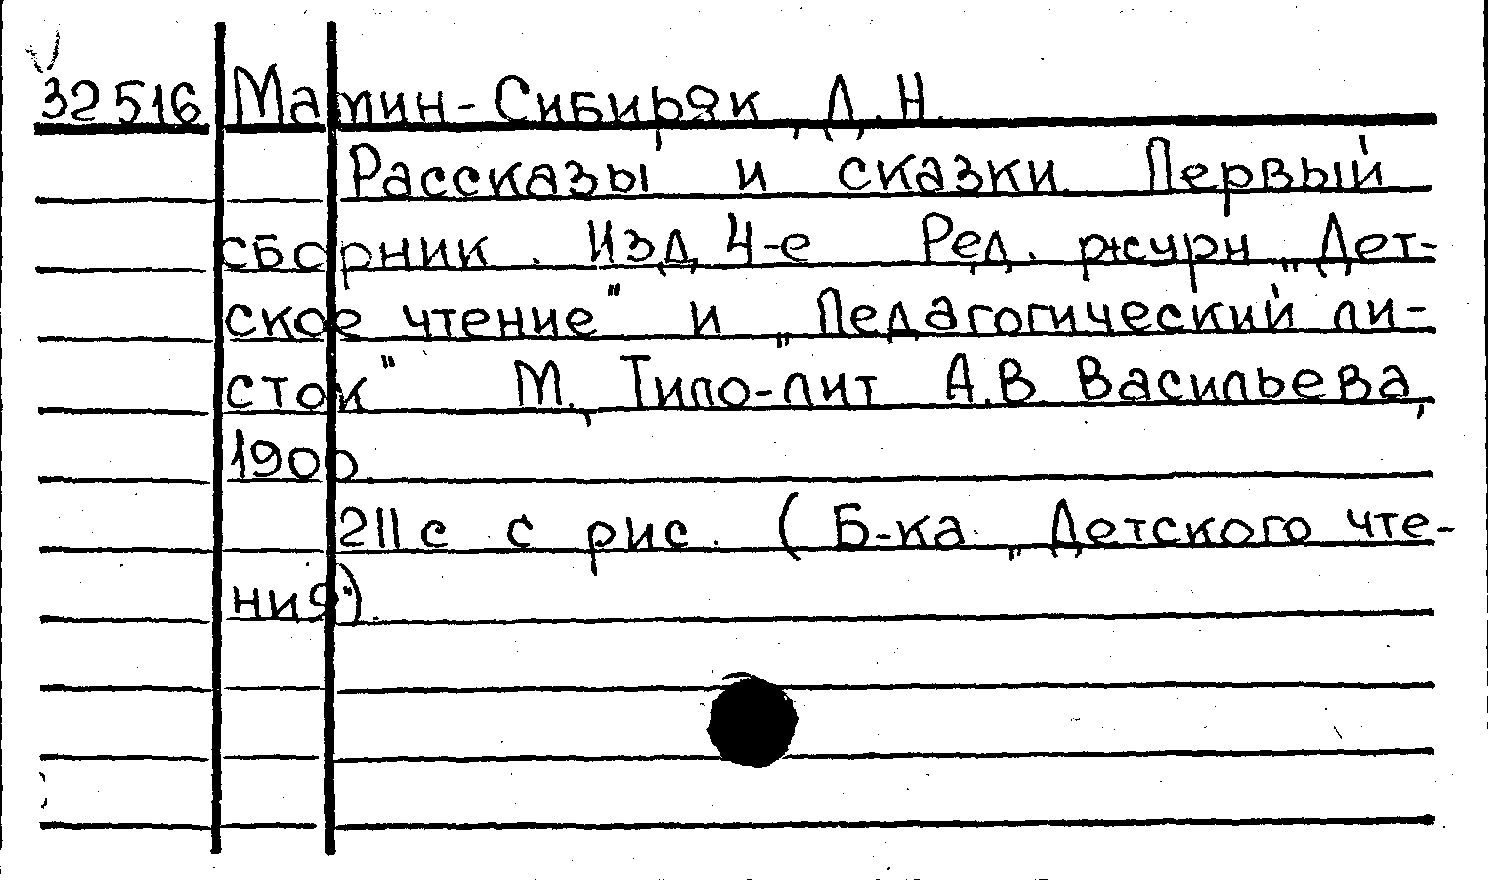 32516 Мамин-Сибиряк, Д.Н.
Рассказы и сказки. Первый
сборник. Изд. 4-е Ред. журн. „Дет-
ское чтение" и „Педагогический ли-
сток" М., Типо-лит А.В. Васильева,
1900.
211 с с рис. (Б-ка „Детского чте-
ния").